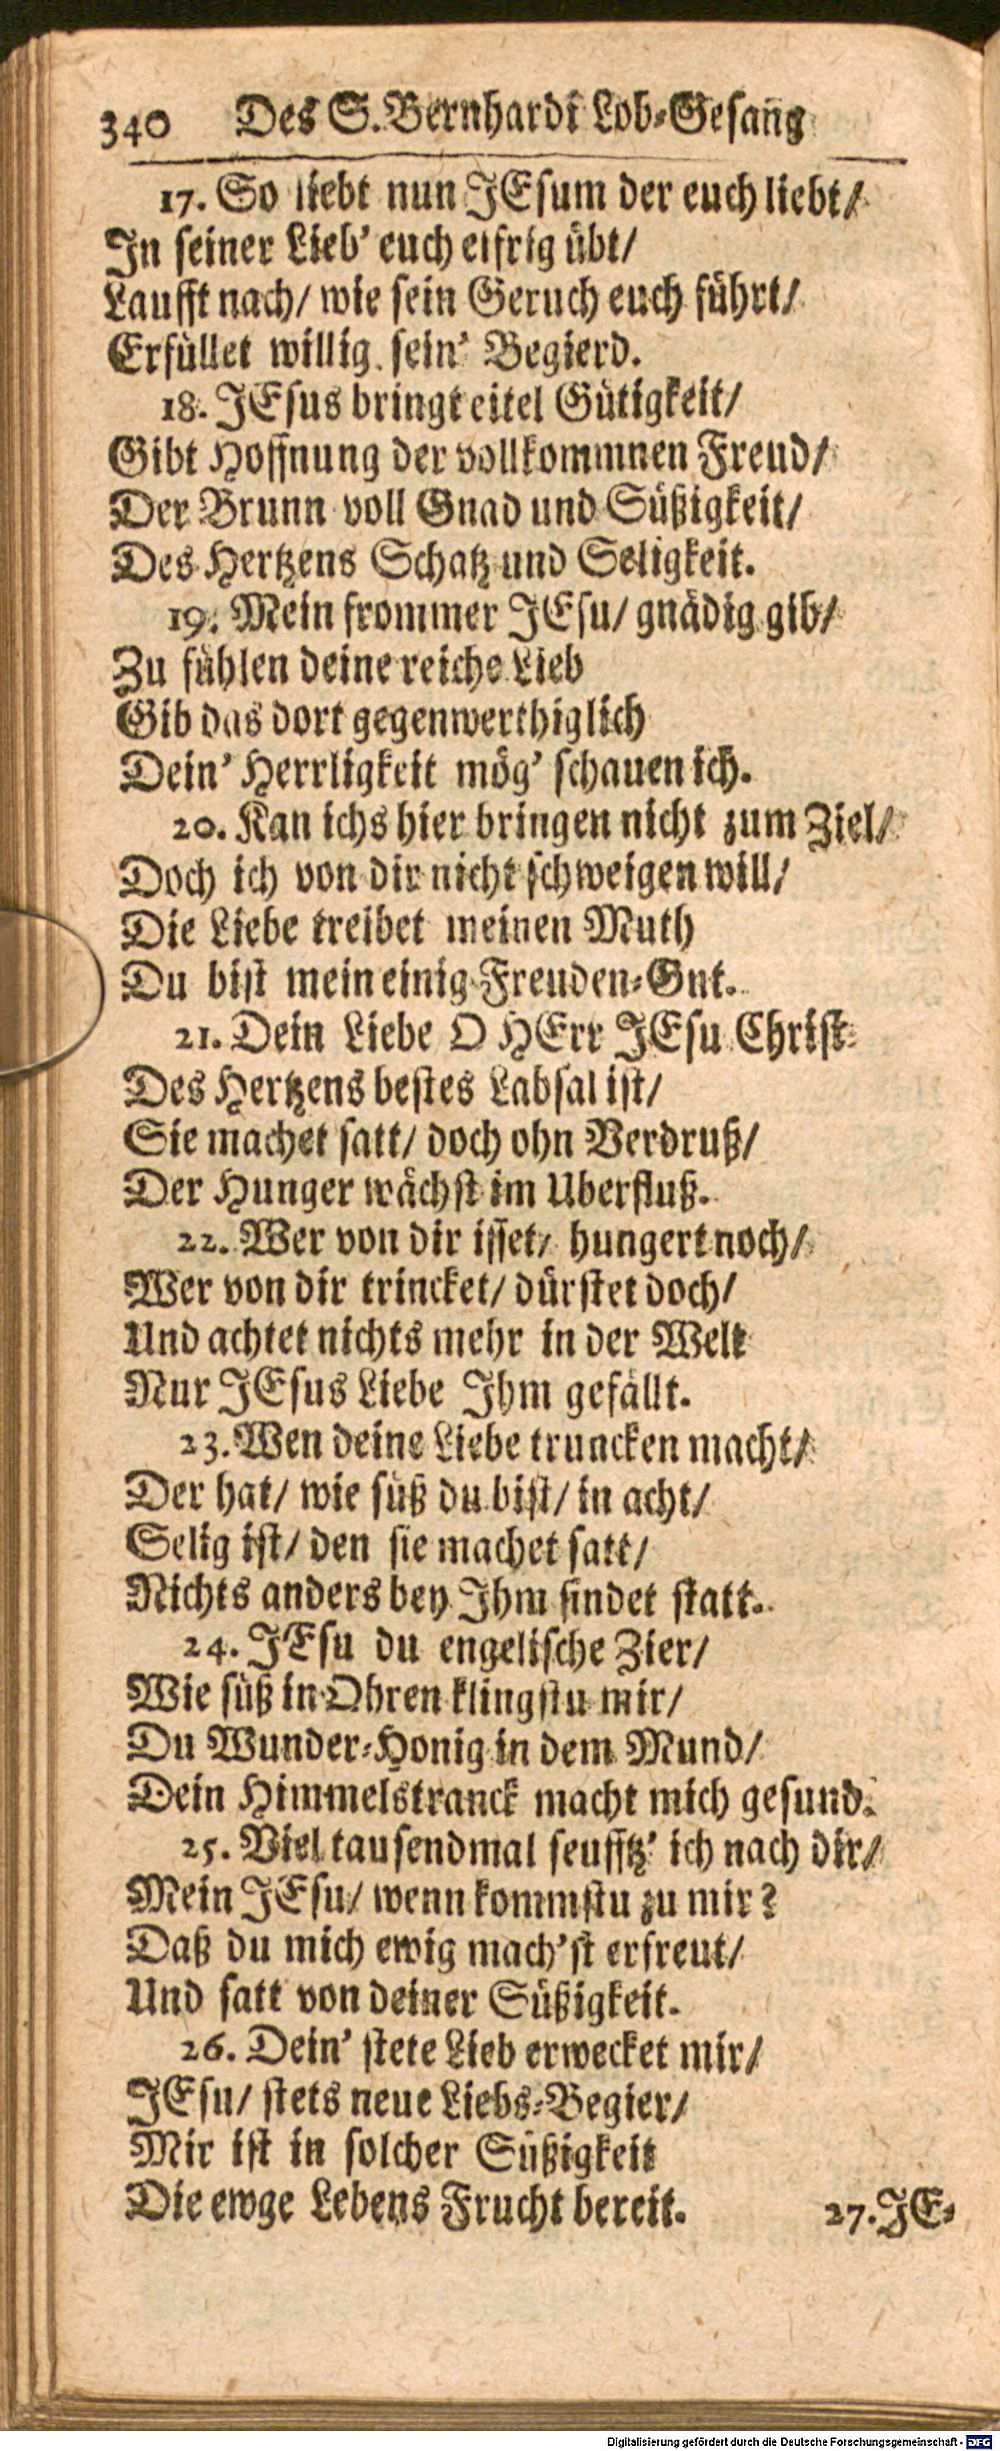 340 Des S. Bernhardi Lob-Gesang
17. So liebt nun JEsum der euch liebt/
In seiner Lieb' euch eifrig übt/
Laufft nach/ wie sein Geruch euch führt/
Erfüllet willig sein' Begierd.
18. JEsus bringt eitel Gütigkeit/
Gibt Hoffnung der vollkommnen Freud/
Der Brunn voll Gnad und Süßigkeit/
Des Hertzens Schatz und Seligkeit.
19. Mein frommer JEsu/ gnädig gib/
Zu fühlen deine reiche Lieb
Gib das dort gegenwerthiglich
Dein' Herrligkeit mög' schauen ich.
20. Kan ichs hier bringen nicht zum Ziel/
Doch ich von dir nicht schweigen will/
Die Liebe treibet meinen Muth
Du bist mein einig Freuden-Gut.
21. Dein Liebe O HErr JEsu Christ
Des Hertzens bestes Labsal ist/
Sie machet satt/ doch ohn Verdruß/
Der Hunger wächst im Uberfluß.
22. Wer von dir isset/ hungert noch/
Wer von dir trincket/ dürstet doch/
Und achtet nichts mehr in der Welt
Nur JEsus Liebe Ihm gefällt.
23. Wen deine Liebe truncken macht/
Der hat/ wie süß du bist/ in acht/
Selig ist/ den sie machet satt/
Nichts anders bey Ihm findet statt.
24. JEsu du engelische Zier/
Wie süß in Ohren klingstu mir/
Du Wunder-Honig in dem Mund/
Dein Himmelstranck macht mich gesund.
25. Viel tausendmal seufftz' ich nach dir/
Mein JEsu/ wenn kommstu zu mir?
Daß du mich ewig mach'st erfreut/
Und satt von deiner Süßigkeit.
26. Dein' stete Lieb erwecket mir/
JEsu/ stets neue Liebs-Begier/
Mir ist in solcher Süßigkeit
Die ewge Lebens Frucht bereit.
27. JE-
Digitalisierung gefördert durch die Deutsche Forschungsgemeinschaft - DFG